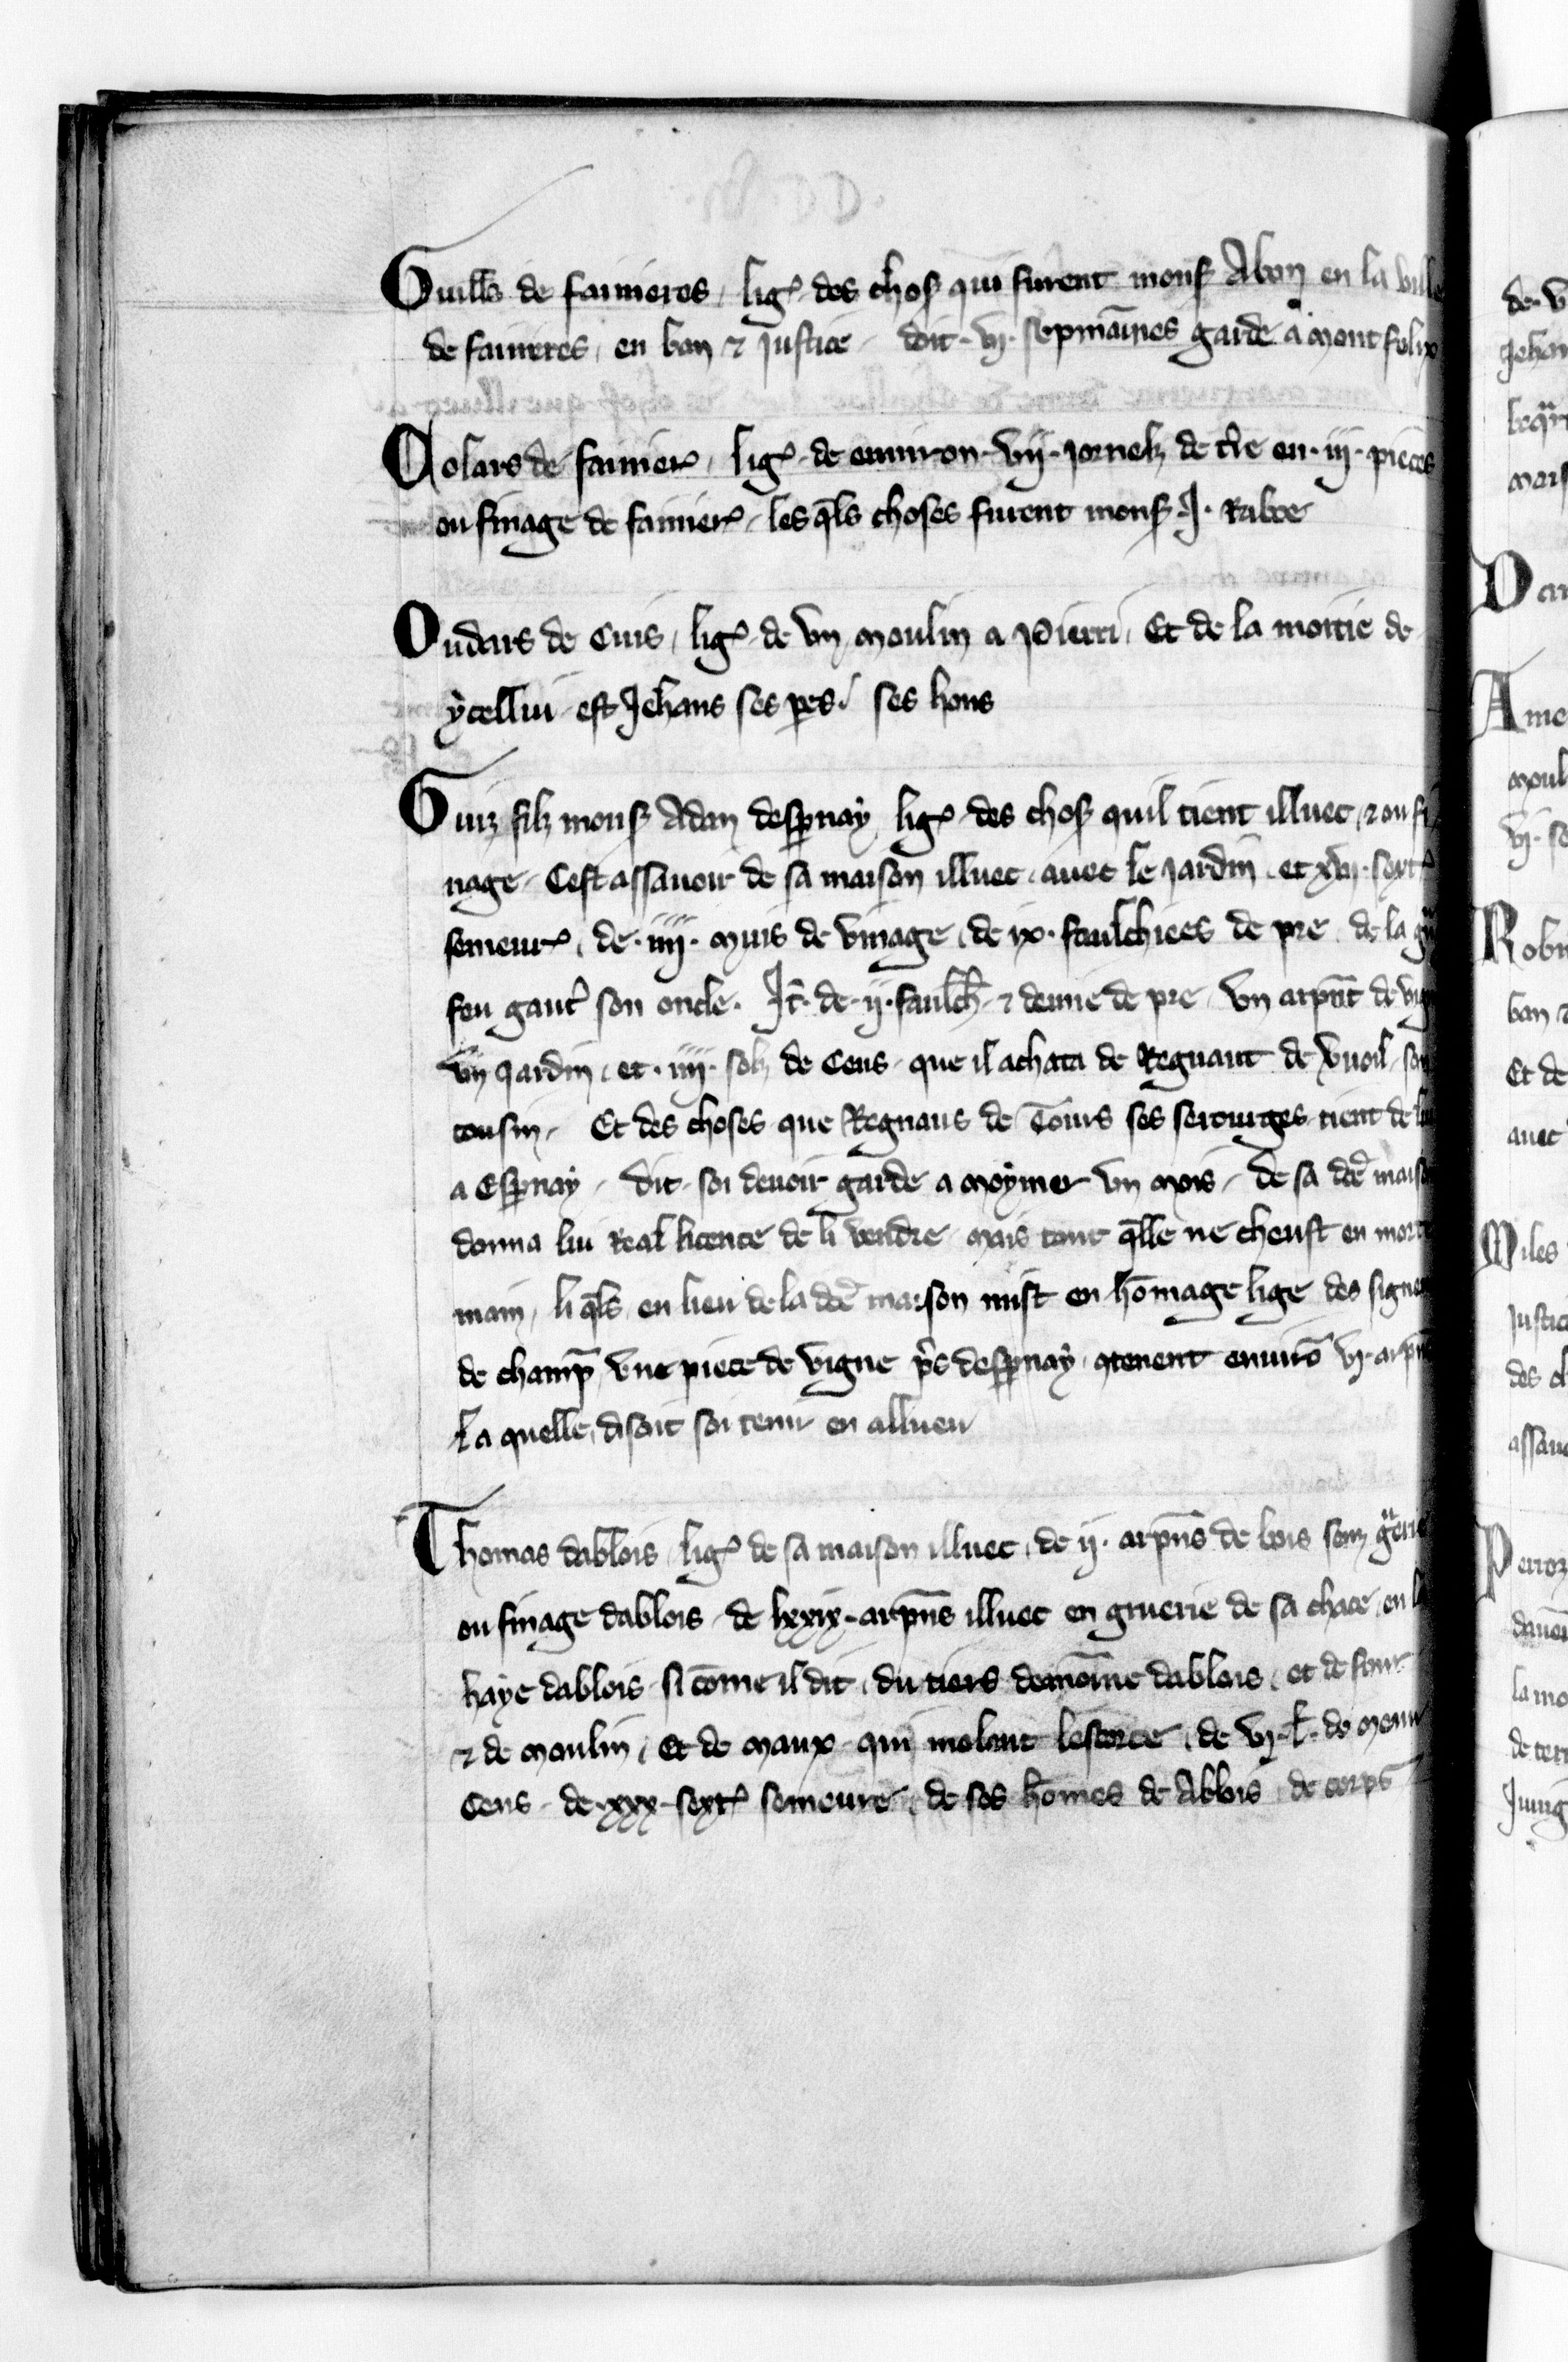 Guill's de fainieres, lig' des chos' qui furent mons' Abon en la ville
de fainieres, en ban ⁊ justice doit .vj. sepmainnes garde a montfelix
Colars de fainier', lig' de environ .vij. jornelz de t're en .iij. pieces
ou finage de fainier', les q̄ls choses furent mons' .J. Raboe
Oudars de Cuis, lig' de vn moulin a Pierri, Et de la moitie de
ycellui est Jehans ses peres ses hons
Guiz filz mons' Adan despernay lig' des chos' quil tient illuec, ⁊ ou fi
nage, Cest assavoir de sa maison illuec, avec le jardin, et xvij. sext'
semeur', de .iiij. muis de vinage, de ix. faulchiees de pre, de la
feu gaut' son oncle. It' de .ij. faulch' ⁊ demie de pre vn arpent de
vn jardin, et .iiij. solz de Cens, que il achata de Regnaut de son
cousin, Et des choses que Regnaus de Tours ses serourges tient de lui
a Espernay, Dit soi devoir garde a moymer vn mois, De sa dc̄e maison
donna lui Real licence de li vendre mais tant q̄lle ne cheust en morte
main, li q̄ls en lieu de la dc̄e maison mist en hōmage lige des signeurs
de champ' vne piece de vigne p's despernay 9tenent envirō vj. arpens
La quelle, disoit soi tenir en allueu
Thomas dablois, lig' de sa maison illuec, de ij. arpens de bois sanz g'erie
ou finage dablois de lxxix. arpens illuec en gruerie de sa chace, en la
haye dablois si cōme il dit, du tiers demoinne dablois, et de four
⁊ de moulin, Et de maux qui molent lescorce, de vj. l. de menu
Cens de .xxx. sext' semeure, de ses hōmes de Ablois de corps